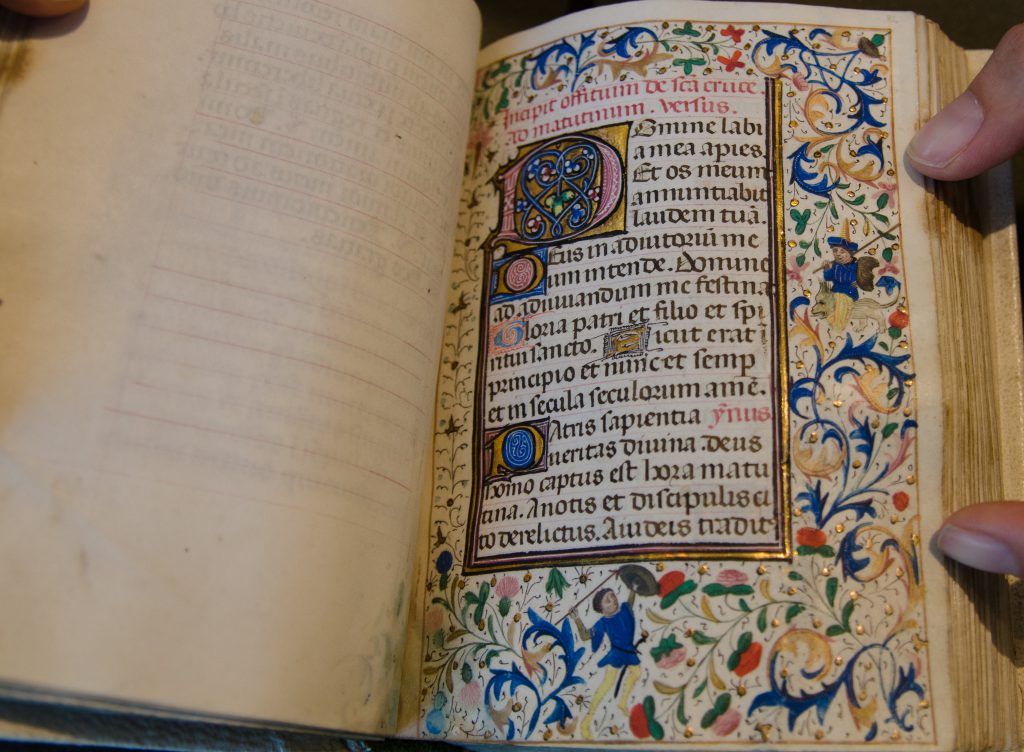 Incipit offitium de scã cruce
ad matutinum. versus.
Domine labi
a mea apies
Et os meum
annuntiabit
laudem tuã.
Deus in adiutoriũ me
um intende. Domine
ad adiuuandum me festina
Gloria patri et filio et spi
ritui sancto. Sicut erat ĩ
principio et nunc et semp
et in secula seculorum amẽ.
Patris sapientia ỹnius
ueritas diuina. deus
homo captus est hora matu
tina. Anotis et discipulis ci
to derelictus. Aiudeis tradit